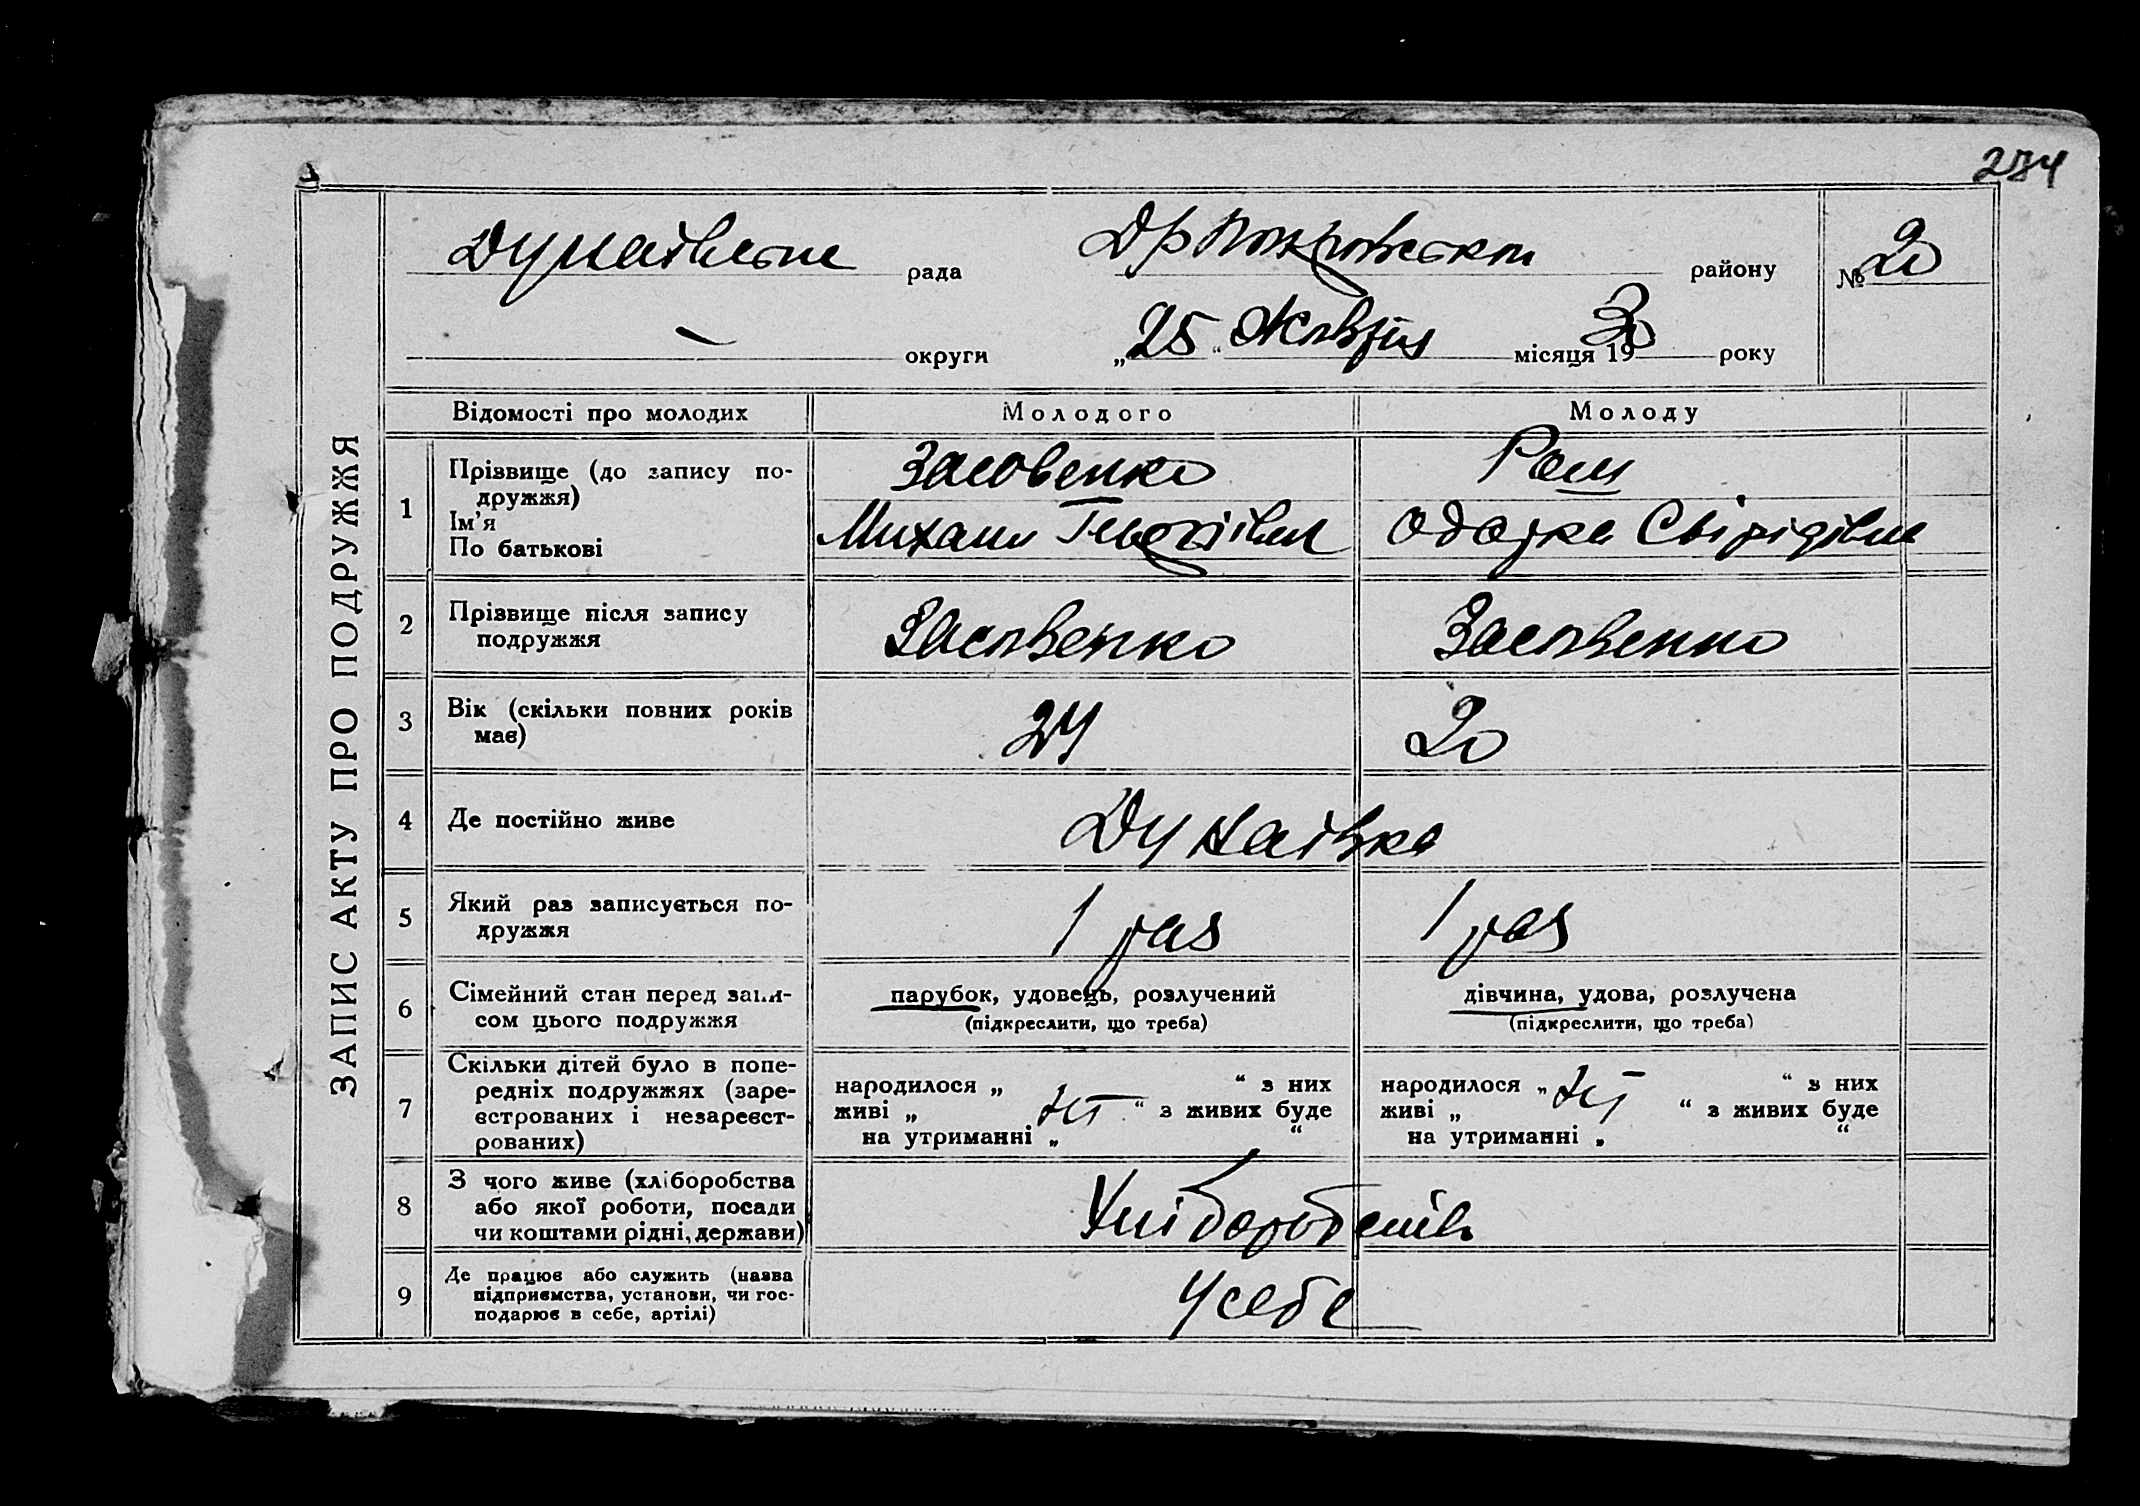 284
Дунаївська рада Др Покровського району № 20
— округи „25“ Жовтня місяця 1930 року
ЗАПИС АКТУ ПРО ПОДРУЖЖЯ
Відомості про молодих Молодого Молоду
1 Прізвище (до запису по-
дружжя)
Ім'я
По батькові
Засовенко
Михаил Георгіівич
Одарка Свірідівна
2 Прізвище після запису
подружжя
Засовенко Засовенко
3 Вік (скільки повних років
має)
24 20
4 Де постійно живе Дунаівка
5 Який раз записується по-
дружжя
1 раз 1 раз
6 Сімейний стан перед запи-
сом цього подружжя
парубок, удовець, розлучений
(підкреслити, що треба)
дівчина, удова, розлучена
(підкреслити, що треба)
7 Скільки дітей було в попе-
редніх подружжях (заре-
єстрованих і незареєст-
рованих)
народилося „ “ з них
живі „ нет “ з живих буде
на утриманні „ “
народилося „ нет “ з них
живі „ “ з живих буде
на утриманні „ “
8 З чого живе (хліборобства
або якої роботи, посади
чи коштами рідні, держави)
9 Де працює або служить (назва
підприємства, установи, чи гос-
подарює в себе, артілі)
У себе